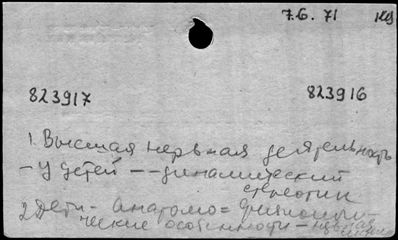 7.6.71
823917 823916
1. Высшая нервная деятельность
- у детей -- динамический
стереотип
2 Дети - анатомо = физиологи-
ческие особенности -